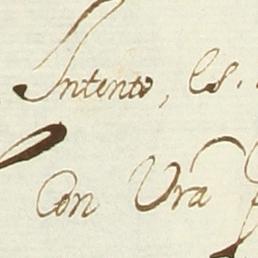 Intento, es
Con Vrã